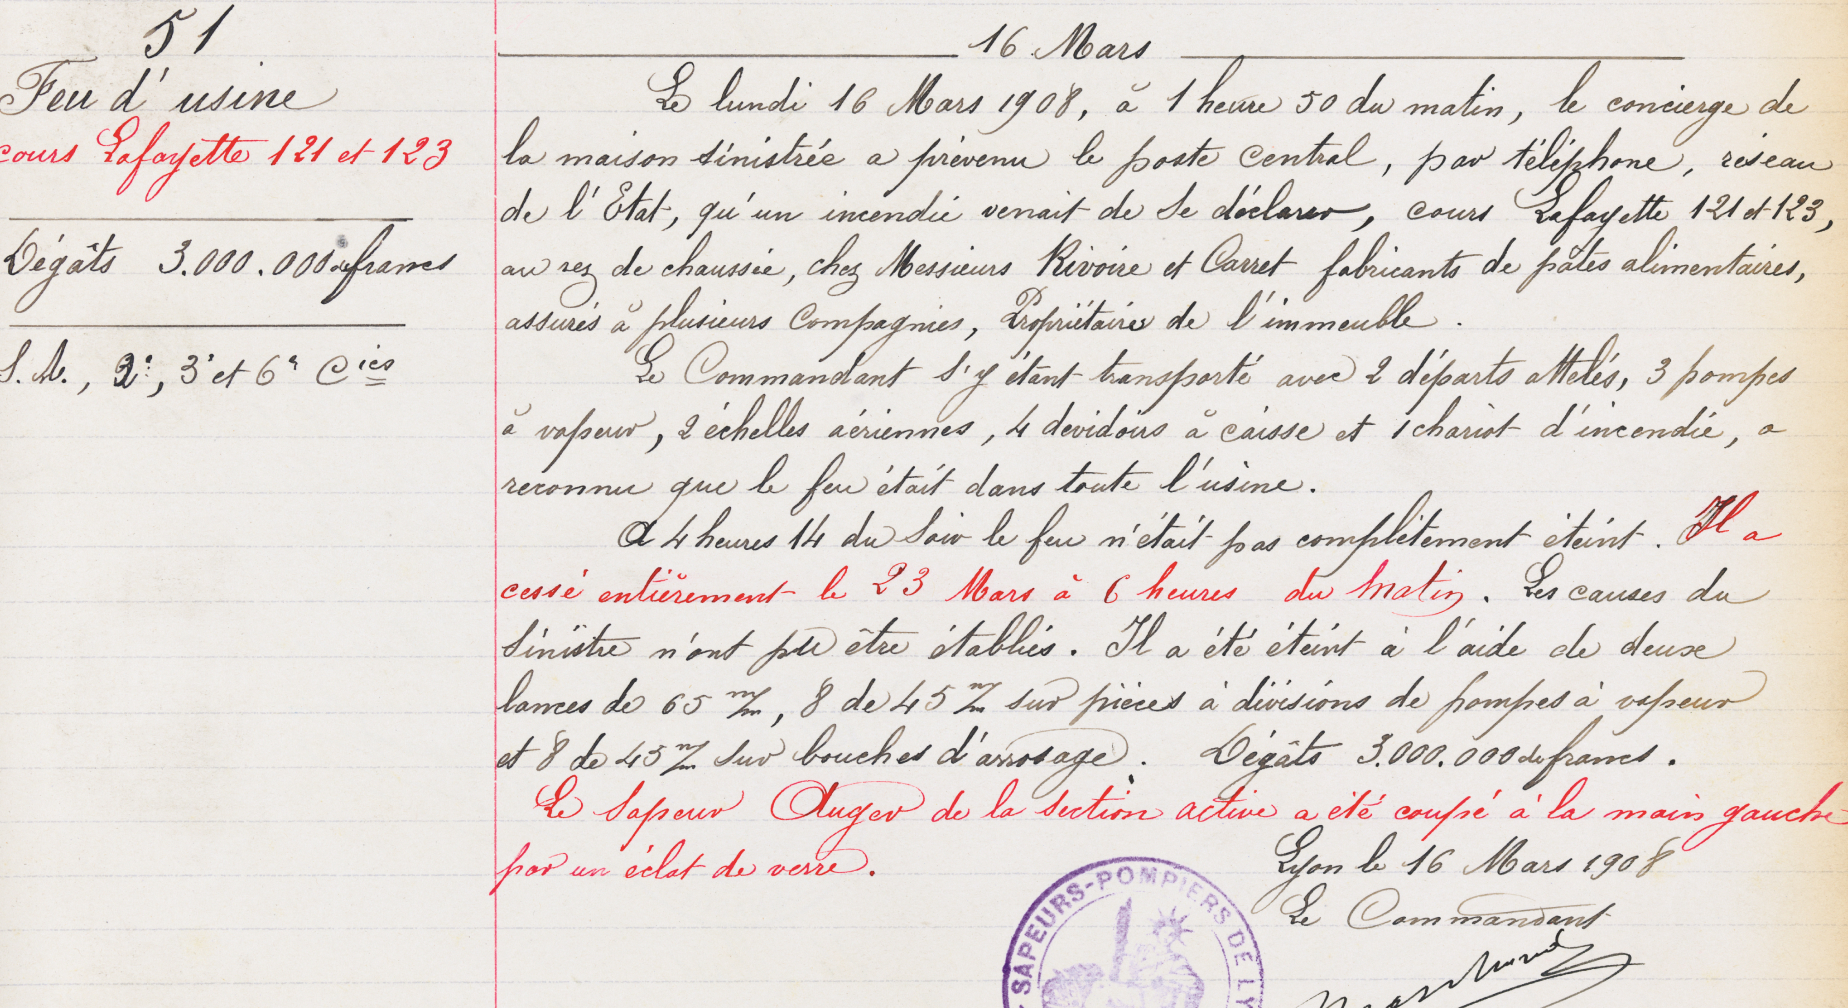 51
Feu d'usine
cours Lafayette 121 et 123
Dégâts 3.000.000 de francs
S.A., 2e, 3e et 6e Cies
16 Mars
Le lundi 16 Mars 1908, à 1 heure 50 du matin, le concierge de
la maison sinistrée a prévenu le poste central, par téléphone, réseau
de l'État, qu'un incendie venait de se déclarer, cours Lafayette 121 et 123,
au rez de chaussée, chez Messieurs Rivoire et Carret fabricants de pâtes alimentaires,
assurés à plusieurs Compagnies, Propriétaires de l'immeuble.
Le Commandant s'y étant transporté avec 2 départs attelés, 3 pompes
à vapeur, 2 échelles aériennes, 4 dévidoirs à caisse et 1 chariot d'incendie, a
reconnu que le feu était dans toute l'usine.
A 4 heures 14 du soir le feu n'était pas complètement éteint. Il a
cessé entièrement le 23 Mars à 6 heures du matin. Les causes du
sinistre n'ont pu être établies. Il a été éteint à l'aide de deux
lances de 65 m/m, 8 de 45 m/m sur pièces à divisions de pompes à vapeur
et 8 de 45 m/m sur bouches d'arrosage. Dégâts 3.000.000 de francs.
Le sapeur Auger de la section active a été coupé à la main gauche
par un éclat de verre.
Lyon le 16 Mars 1908
Le Commandant
SAPEURS-POMPIERS DE LY